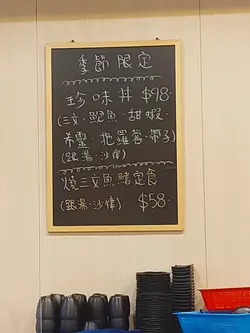 季節限定
珍味丼 $98.
(三文.鯛魚.甜蝦.
希靈.拖羅蓉.帶子)
(跟湯.沙律)
燒三文魚鰭定食
(跟湯.沙律) $58.